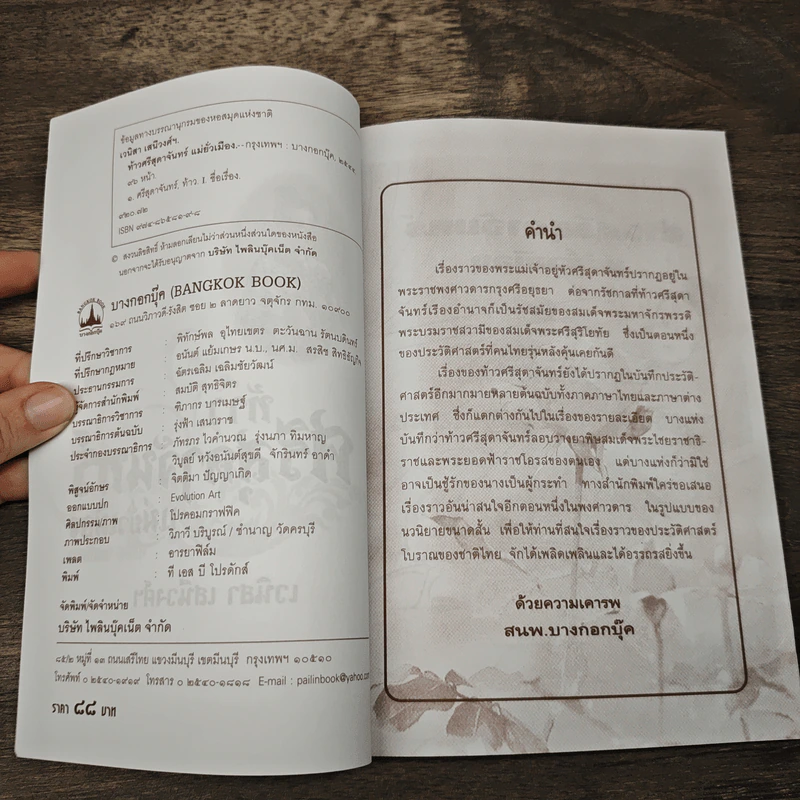 ข้อมูลทางบรรณานุกรมของหอสมุดแห่งชาติ
เวนิสา เสนีวงศ์ฯ.
ท้าวศรีสุดาจันทร์ แม่ยั่วเมือง.--กรุงเทพฯ : บางกอกบุ๊ค, ๒๕๔๔
๙๖ หน้า.
๑. ศรีสุดาจันทร์, ท้าว. I. ชื่อเรื่อง.
๙๒๐.๗๒
ISBN ๙๗๔-๘๖๕๘๑-๙-๘
© สงวนลิขสิทธิ์ ห้ามลอกเลียนไม่ว่าส่วนหนึ่งส่วนใดของหนังสือ
นอกจากจะได้รับอนุญาตจาก บริษัท ไพลินบุ๊คเน็ต จำกัด
BANGKOK BOOK
บางกอกบุ๊ค
บางกอกบุ๊ค (BANGKOK BOOK)
๑๖๙ ถนนวิภาวดี-รังสิต ซอย ๒ ลาดยาว จตุจักร กทม. ๑๐๙๐๐
ที่ปรึกษาวิชาการ : พิทักษ์พล อุไทยเขตร ตะวันฉาน รัตนบดินทร์
ที่ปรึกษากฎหมาย : อนันต์ แย้มเกษร น.บ., นศ.ม. สรสิช สิทธิธัญกิจ
ประธานกรรมการ : ฉัตรเฉลิม เฉลิมชัยวัฒน์
ผู้จัดการสำนักพิมพ์ : สมบัติ สุทธิจิตร
บรรณาธิการวิชาการ : ฑิภากร บารเมษฐ์
บรรณาธิการต้นฉบับ : รุ่งฟ้า เสนาราช
ประจำกองบรรณาธิการ : ภัทรภร ไวคำนวณ รุ่งนภา ทิมหาญ
วิบูลย์ หวังอนันต์สุขดี จักรินทร์ อาดำ
พิสูจน์อักษร : จิตติมา ปัญญาเกิด
ออกแบบปก : Evolution Art
ศิลปกรรม/ภาพ : โปรคอมกราฟฟิค
ภาพประกอบ : วิภาวี บริบูรณ์ / ชำนาญ วัดครบุรี
เพลต : อารยาฟิล์ม
พิมพ์ : ที เอส บี โปรดักส์
จัดพิมพ์/จัดจำหน่าย
บริษัท ไพลินบุ๊คเน็ต จำกัด
๘๕/๒ หมู่ที่ ๑๓ ถนนเสรีไทย แขวงมีนบุรี เขตมีนบุรี กรุงเทพฯ ๑๐๕๑๐
โทรศัพท์ ๐ ๒๕๔๐-๑๙๑๙ โทรสาร ๐ ๒๕๔๐-๑๘๑๘ E-mail : pailinbook@yahoo.com
ราคา ๘๘ บาท
คำนำ
เรื่องราวของพระแม่เจ้าอยู่หัวศรีสุดาจันทร์ปรากฏอยู่ใน
พระราชพงศาวดารกรุงศรีอยุธยา ต่อจากรัชกาลที่ท้าวศรีสุดา
จันทร์เรืองอำนาจก็เป็นรัชสมัยของสมเด็จพระมหาจักรพรรดิ
พระบรมราชสวามีของสมเด็จพระศรีสุริโยทัย ซึ่งเป็นตอนหนึ่ง
ของประวัติศาสตร์ที่คนไทยรุ่นหลังคุ้นเคยกันดี
เรื่องของท้าวศรีสุดาจันทร์ยังได้ปรากฏในบันทึกประวัติ-
ศาสตร์อีกมากมายหลายต้นฉบับทั้งภาคภาษาไทยและภาษาต่าง
ประเทศ ซึ่งก็แตกต่างกันไปในเรื่องของรายละเอียด บางแห่ง
บันทึกว่าท้าวศรีสุดาจันทร์ลอบวางยาพิษสมเด็จพระไชยราชาธิ-
ราชและพระยอดฟ้าราชโอรสของตนเอง แต่บางแห่งก็ว่ามิใช่
อาจเป็นชู้รักของนางเป็นผู้กระทำ ทางสำนักพิมพ์ใคร่ขอเสนอ
เรื่องราวอันน่าสนใจอีกตอนหนึ่งในพงศาวดาร ในรูปแบบของ
นวนิยายขนาดสั้น เพื่อให้ท่านที่สนใจเรื่องราวของประวัติศาสตร์
โบราณของชาติไทย จักได้เพลิดเพลินและได้อรรถรสยิ่งขึ้น
ด้วยความเคารพ
สนพ.บางกอกบุ๊ค